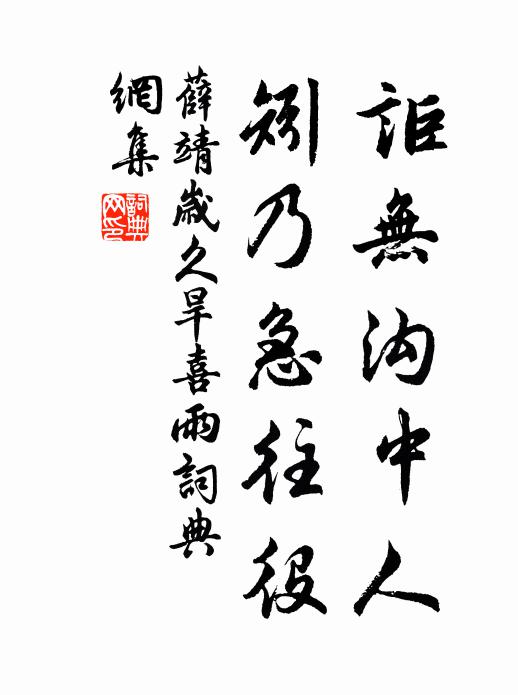 詎無沟中人
矧乃急往役
薛靖歲久旱喜雨詞典
網集
詞典
网印